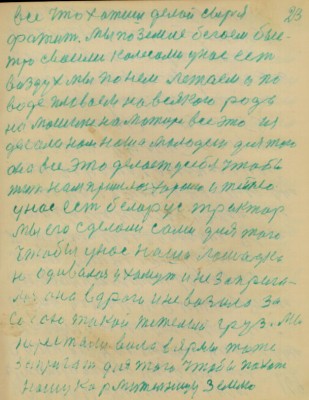 23
все што хатиш делай сваей
фатит. мы по земле бегаем быс-
тро сваими каписами у нас ест
воздух мы по нем летаем и по
воде плаваем на всякого родь
на машине на матцие все это из
делало нам наша молодеш для того
она все это делает дебя чтобы
жит нам пришлос харошо и легко
у нас ест беларус трактар
мы его сделали сами для того
чтобы у нас наша лошадка
не одивалас у хамут и не запрега-
лас она в дрога и не вазила за
сабою такой тежелый груз. мы
перестали вала в ярмы тоже
запрегат для того чтобы пахат
нашу кармителницу землю